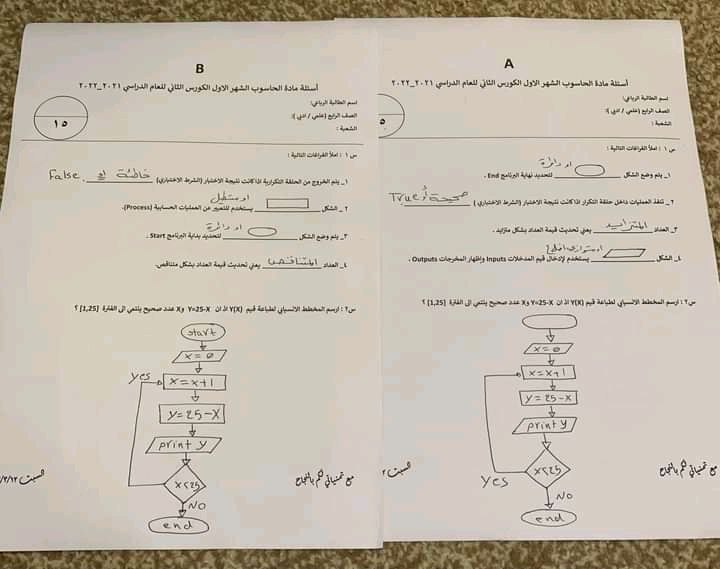 B
أسئلة مادة الحاسوب الشهر الاول الكورس الثاني للعام الدراسي ٢٠٢١_٢٠٢٢
اسم الطالبة الرباعي:
الصف الرابع (علمي / ادبي ):
الشعبة :
١٥
س ١ : املأ الفراغات التالية :
١_ يتم الخروج من الحلقة التكرارية اذا كانت نتيجة الاختبار (الشرط الاختباري) خاطئة او False.
او مستطيل
٢ _ الشكل يستخدم للتعبير عن العمليات الحسابية (Process).
او دائرة
٣_ يتم وضع الشكل لتحديد بداية البرنامج Start .
٤_ العداد المتناقص يعني تحديث قيمة العداد بشكل متناقص.
س٢ : ارسم المخطط الانسيابي لطباعة قيم Y(X) اذ ان Y=25-X وX عدد صحيح ينتمي الى الفترة [1,25] ؟
start
x=0
yes
x=x+1
y=25-x
print y
x<25
NO
end
مع تمنياتي لكم بالنجاح
السبت ٣/١٢/
A
أسئلة مادة الحاسوب الشهر الاول الكورس الثاني للعام الدراسي ٢٠٢١_٢٠٢٢
اسم الطالبة الرباعي:
الصف الرابع (علمي / ادبي ):
الشعبة :
٥
س ١ : املأ الفراغات التالية :
او دائرة
١_ يتم وضع الشكل لتحديد نهاية البرنامج End .
٢_ تنفذ العمليات داخل حلقة التكرار اذا كانت نتيجة الاختبار (الشرط الاختباري ) صحيحة أو True
٣_ العداد المتزايد يعني تحديث قيمة العداد بشكل متزايد.
او متوازي اضلاع
٤_ الشكل يستخدم لإدخال قيم المدخلات Inputs وإظهار المخرجات Outputs .
س٢ : ارسم المخطط الانسيابي لطباعة قيم Y(X) اذ ان Y=25-X وX عدد صحيح ينتمي الى الفترة [1,25] ؟
x=0
x=x+1
y=25-x
print y
x<25
yes
NO
end
مع تمنياتي لكم بالنجاح
السبت ٢